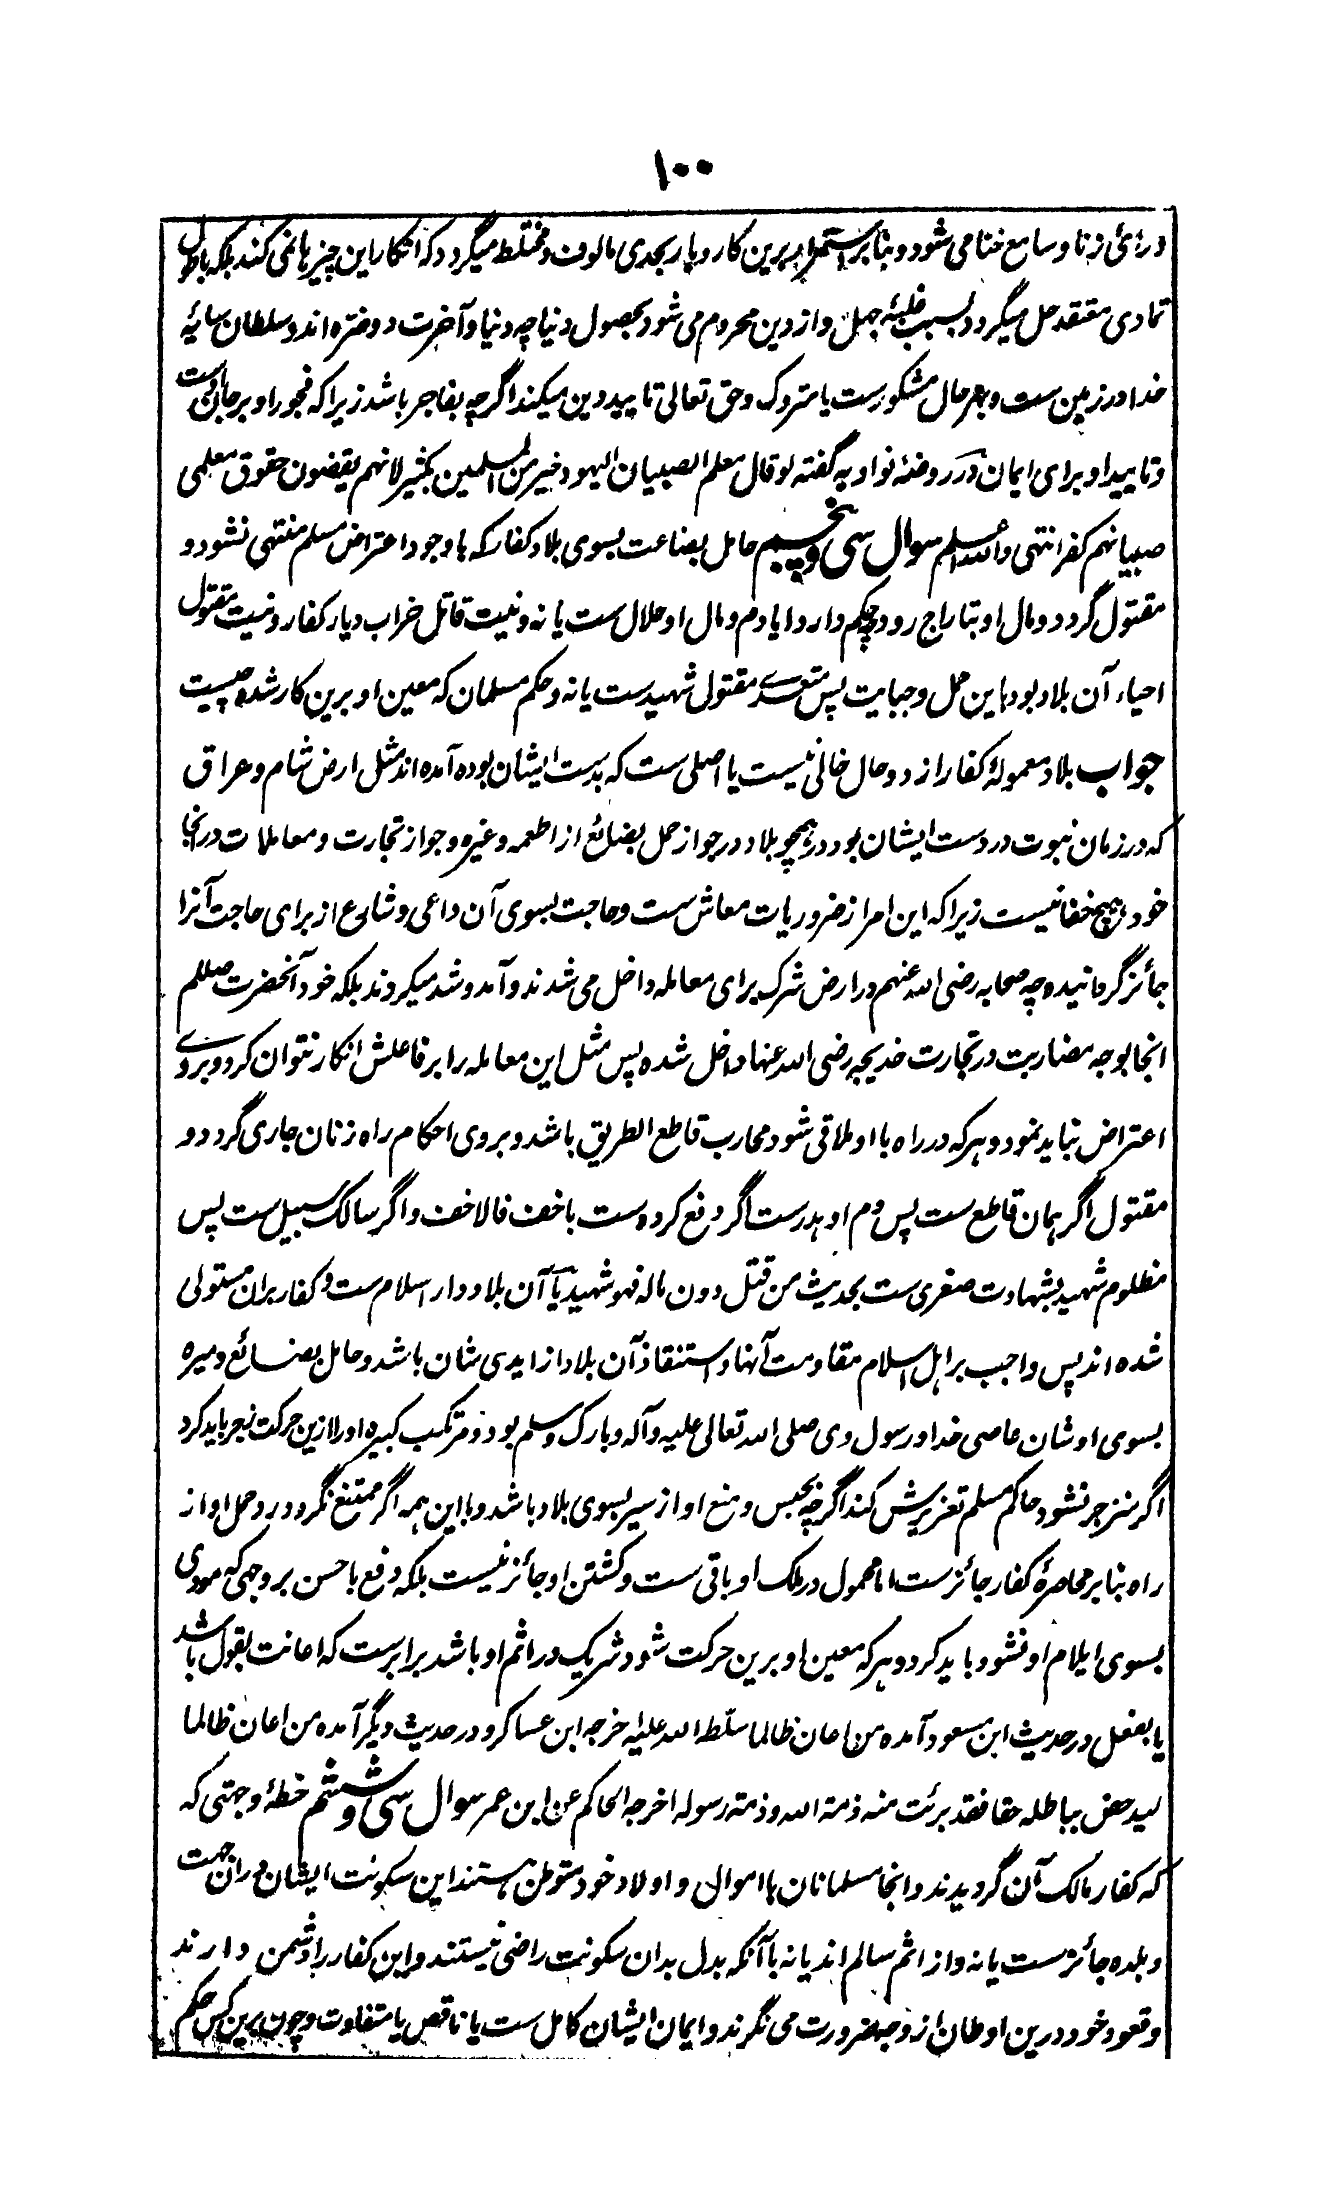 ۱۰۰
و رائی زنا و سامع غنا می شود و بنا بر استمرار برین کار و بار بحدی مالوف و مختلط میگردد که انکار این چیزها نمی کند بلکه باطول
تمادی معتقد حل میگردد بسبب غلبۂ جهل و از دین محروم می شود بحصول دنیا چه دنیا و آخرت دو ضره اند و سلطان سایۂ
خدا در زمین ست و بهر حال مشکورست یا متروک و حق تعالی تایید دین میکند اگرچه بفاجر باشد زیرا که فجور او بر جان اوست
و تایید او برای ایمان در روضۂ نواویه گفته لو قال معلم الصبیان الیهود خیر من المسلمین بکثیر لانهم یقضون حقوق معلمی
صبیانهم کفر انتهی والله اعلم سوال سی و پنجم حامل بضاعت بسوی بلاد کفار که باوجود اعتراض مسلم منتهی نشود و
مقتول گردد و مال او بتاراج رود چه حکم دارد ایا دم و مال او حلال ست یا نه و نیت قاتل خراب دیار کفار و نیت مقتول
احیاء آن بلاد بود باین حمل و جبایت پس متعدی مقتول شهیدست یا نه و حکم مسلمان که معین او برین کار شده چیست
جواب بلاد معمولۂ کفار از دو حال خالی نیست یا اصلی ست که بدست ایشان بوده آمده اند مثل ارض شام و عراق
که در زمان نبوت در دست ایشان بود در همچو بلاد در جواز حمل بضائع از اطعمه و غیره و جواز تجارت و معاملات در انجا
خود هیچ خفا نیست زیرا که این امر از ضروریات معاش ست و حاجت بسوی آن داعی و شارع از برای حاجت آنرا
جائز گردانیده چه صحابه رضی الله عنهم در ارض شرک برای معامله داخل می شدند و آمد و شد میکردند بلکه خود آنحضرت صللم
انجا بوجه مضاربت در تجارت خدیجه رضی الله عنها داخل شده پس مثل این معامله را بر فاعلش انکار نتوان کرد و بروی
اعتراض نباید نمود و هرکه در راه با او ملاقی شود محارب قاطع الطریق باشد و بروی احکام راه زنان جاری گردد و
مقتول اگر همان قاطع ست پس دم او هدرست اگر دفع کرده ست باخف فالاخف و اگر سالک سبیل ست پس
مظلوم شهید بشهادت صغری ست بحدیث من قتل دون ماله فهو شهید یا آن بلاد دار اسلام ست و کفار بران مستولی
شده اند پس واجب بر اهل اسلام مقاومت آنها و استنقاذ آن بلاد از ایدی شان باشد و حامل بضائع و میره
بسوی اوشان عاصی خدا و رسول وی صلی الله تعالی علیه وآله و بارک وسلم بود و مرتکب کبیره او را ازین حرکت زجر باید کرد
اگر منزجر نشود حاکم مسلم تعزیرش کند اگرچه بحبس و منع او از سیر بسوی بلاد باشد و با این همه اگر ممتنع نگردد رد حمل او از
راه بنا بر محاصرۂ کفار جائزست اما محمول در ملک او باقی ست و کشتن او جائز نیست بلکه دفع باحسن بروجهی که مودی
بسوی ایلام او نشود باید کرد و هرکه معین او برین حرکت شود شریک در اثم او باشد برابرست که اعانت بقول باشد
یا بفعل در حدیث ابن مسعود آمده من اعان ظالما سلّط الله علیه اخرجه ابن عساکر و در حدیث دیگر آمده من اعان ظالما
لیدحض بباطله حقا فقد برئت منه ذمة الله و ذمة رسوله اخرجه الحاکم عن ابن عمر سوال سی و ششم خطۂ و جهتی که
که کفار مالک آن گردیدند و انجا مسلمانان با اموال و اولاد خود متوطن هستند این سکونت ایشان دران جهت
و بلده جائزست یا نه و از اثم سالم اند یا نه با آنکه بدل بدان سکونت راضی نیستند و این کفار را دشمن دارند
و قعود خود درین اوطان از وجه ضرورت می نگرند و ایمان ایشان کامل ست یا ناقص یا متفاوت و چون برین کس حکم